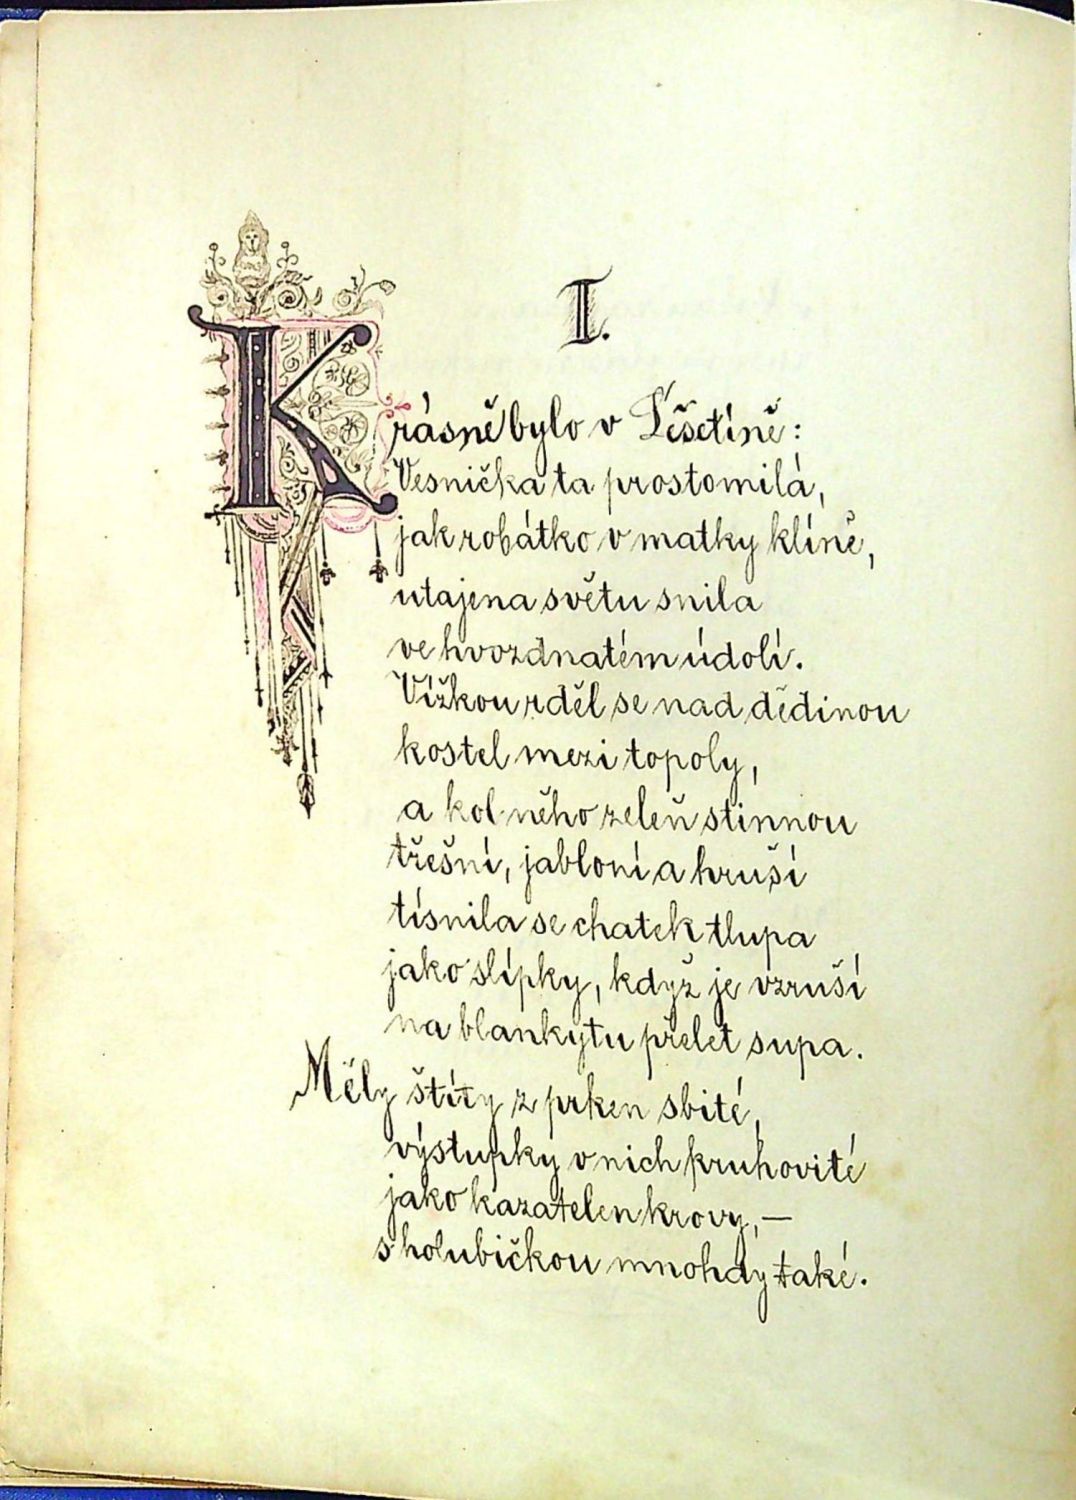 I.
Krásně bylo v Lešetíně:
Vesnička ta prostomilá,
jak robátko v matky klíně,
utajena světu snila
ve hvozdnatém údolí.
Vížkou rděl se nad dědinou
kostel mezi topoly,
a kol něho zeleň stinnou
třešní, jabloní a hruší
tísnila se chatek tlupa
jako slípky, když je vzruší
na blankytu přelet supa.
Měly štíty z prken sbité,
výstupky v nich kruhovité
jako kazatelen krovy, —
s holubičkou mnohdy také.